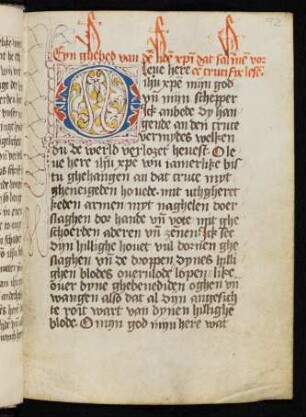 Eyn ghebed van
leue here
ihu xpe mijn god
vn mijn schepper
Ick anbede dy han
gende an den cruce
vermydes welken
du de werld verlozet heuest O le
ue here ihu xpe wu iamerlike bis
tu ghehangen an dat cruce myt
gheneigeden houede mit uthgherec
keden armen myt naghelen doer
slaghen dor hande vn vote mit ghe
schoerden aderen vn zenen Ick see
dijn hillighe houet vul dornen ghe
slaghen vn de droppen dynes hilli
ghen blodes ouervlode lopen like
ouer dyne ghebenediden oghen vn
wangen also dat al dijn angesich
te rout wart van dynen hillighe
blode O mijn god mijn here wat